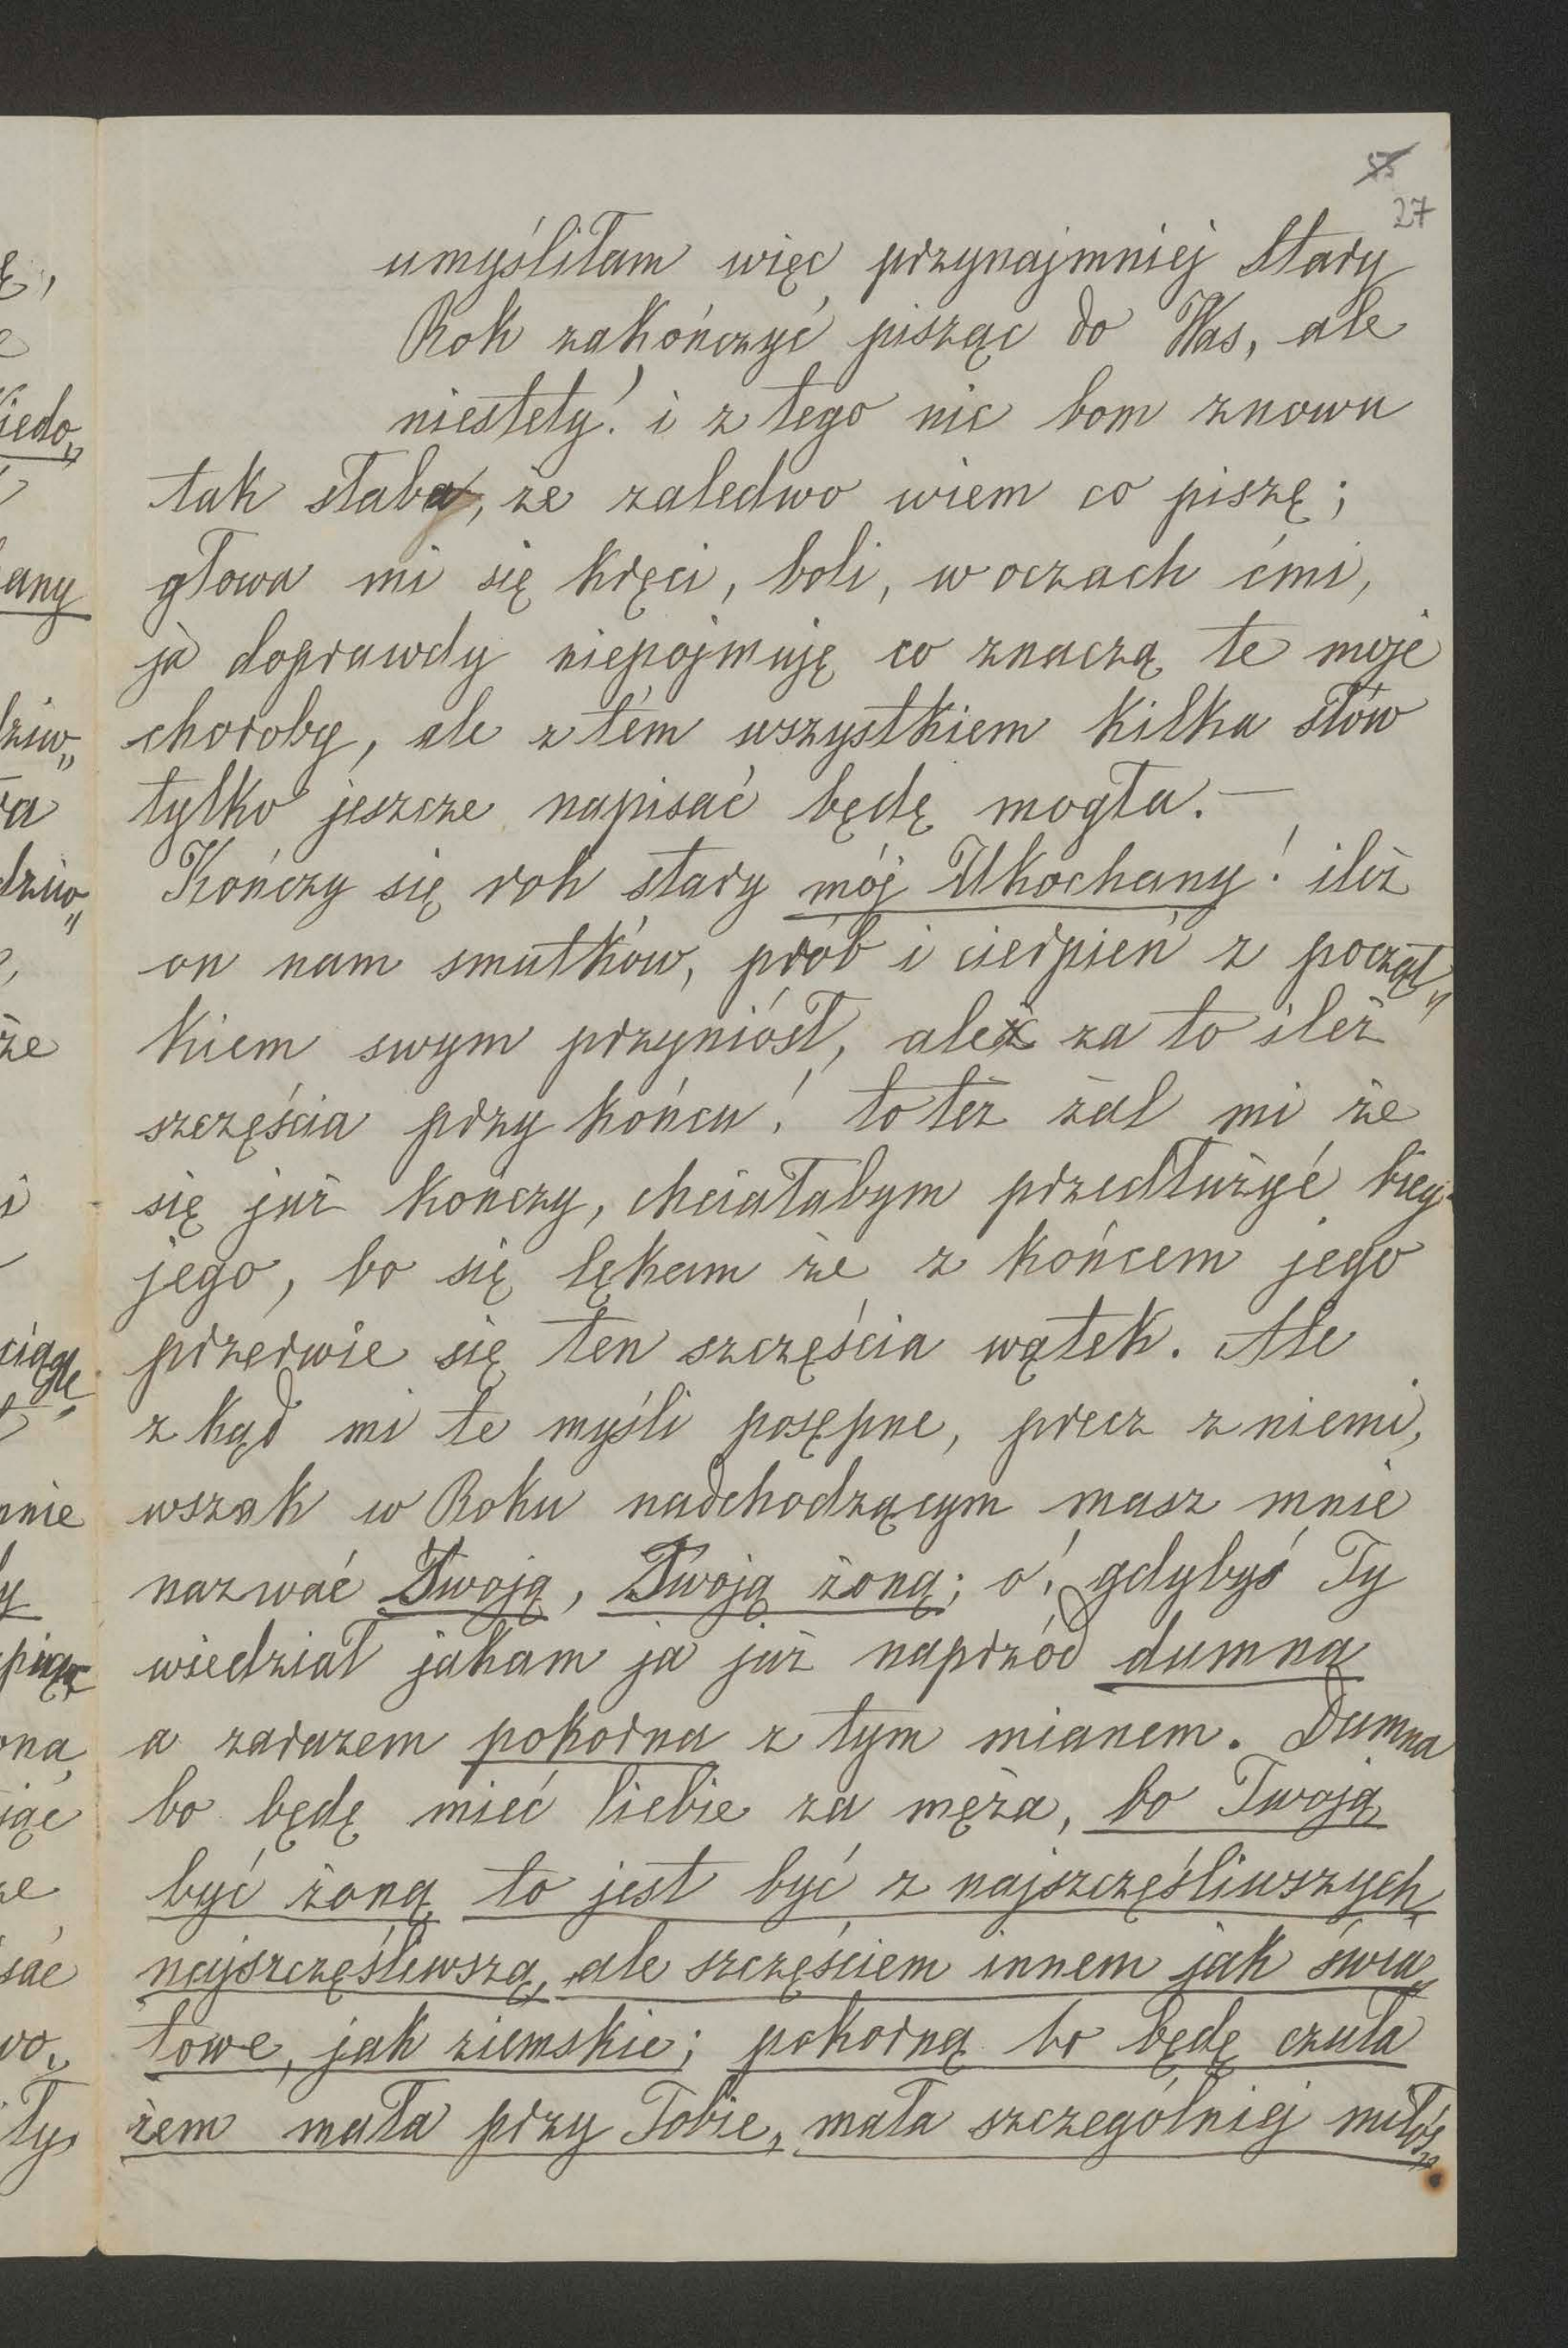 27
umyśliłam więc przynajmniej Stary
Rok zakończyć pisząc do Was, ale
niestety! i z tego nic bom znowu
tak słaba, że zaledwo wiem co piszę;
głowa mi się kręci, boli, w oczach ćmi,
ja doprawdy niepojmuję co znaczą te moje
choroby, ale z tém wszystkiem kilka słów
tylko jeszcze napisać będę mogła. —
Kończy się rok stary mój Ukochany! ileż
on nam smutków, prób i cierpień z począt„
kiem swym przyniósł, aleź za to ileż
szczęścia przy końcu! to też żal mi że
się już kończy, chciałabym przedłużyć bieg
jego, bo się lękam że z końcem jego
przerwie się ten szczęścia wątek. Ale
z kąd mi te myśli posępne, precz z niemi,
wszak w Roku nadchodzącym masz mnie
nazwać Twoją, Twoją żoną; o! gdybyś Ty
wiedział jakam ja już naprzód dumną
a zarazem pokorna z tym mianem. Dumna
bo będę mieć Ciebie za męża, bo Twoją
być żoną to jest być z najszczęśliwszych
najszczęśliwszą, ale szczęściem innem jak świa„
towe, jak ziemskie; pokorną bo będę czuła
żem mała przy Tobie, mała szczególniej miłoś„
iedo„
any
dziw„
ra
dziw„
że
ciągłe
mnie
ona,
iąć
że
sać
wo„
ty